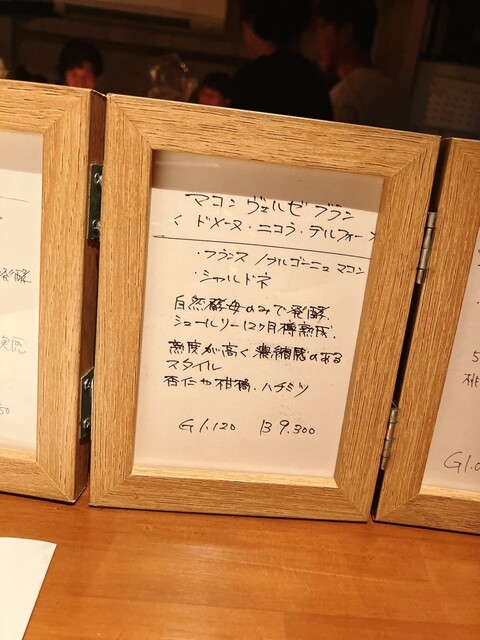 マコン ヴェルゼ ブラン
〈 ドメーヌ・ニコラ・デルフォー
・フランス / ブルゴーニュ マコン
・シャルドネ
自然酵母のみで発酵.
シュールリー12ヶ月樽熟成.
熟度が高く濃縮感のある
スタイル
杏仁や柑橘.ハチミツ
G1.120 B9.300
発酵
50
G1.0